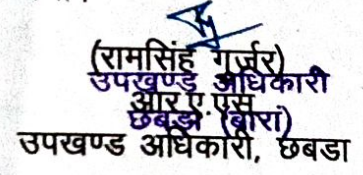 (रामसिंह गुर्जर)
उपखण्ड अधिकारी
आर.ए.एस
छबड़ा (बारां)
उपखण्ड अधिकारी, छबडा